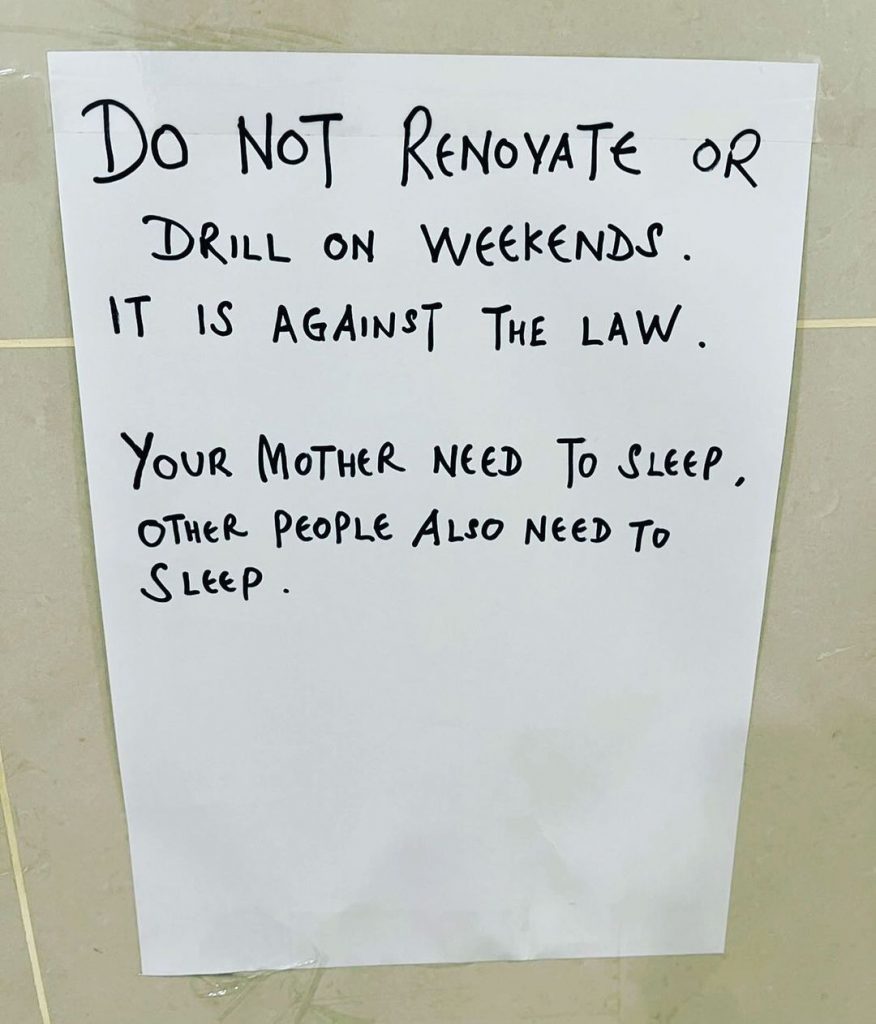 DO NOT RENOVATE OR
DRILL ON WEEKENDS.
IT IS AGAINST THE LAW.
YOUR MOTHER NEED TO SLEEP,
OTHER PEOPLE ALSO NEED TO
SLEEP.